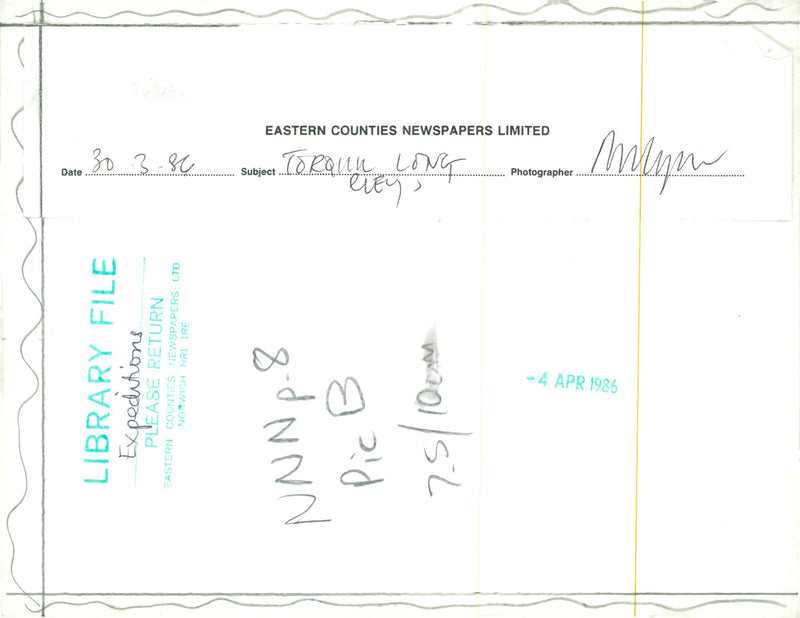 EASTERN COUNTIES NEWSPAPERS LIMITED
Date 30 . 3 . 86 Subject TORQUIL LONG Photographer
LIBRARY FILE
Expeditions
PLEASE RETURN
EASTERN COUNTIES NEWSPAPERS LTD.
NORWICH NR1 1RE
NNN p.8
Pic B
7.5/10cm
-4 APR 1986